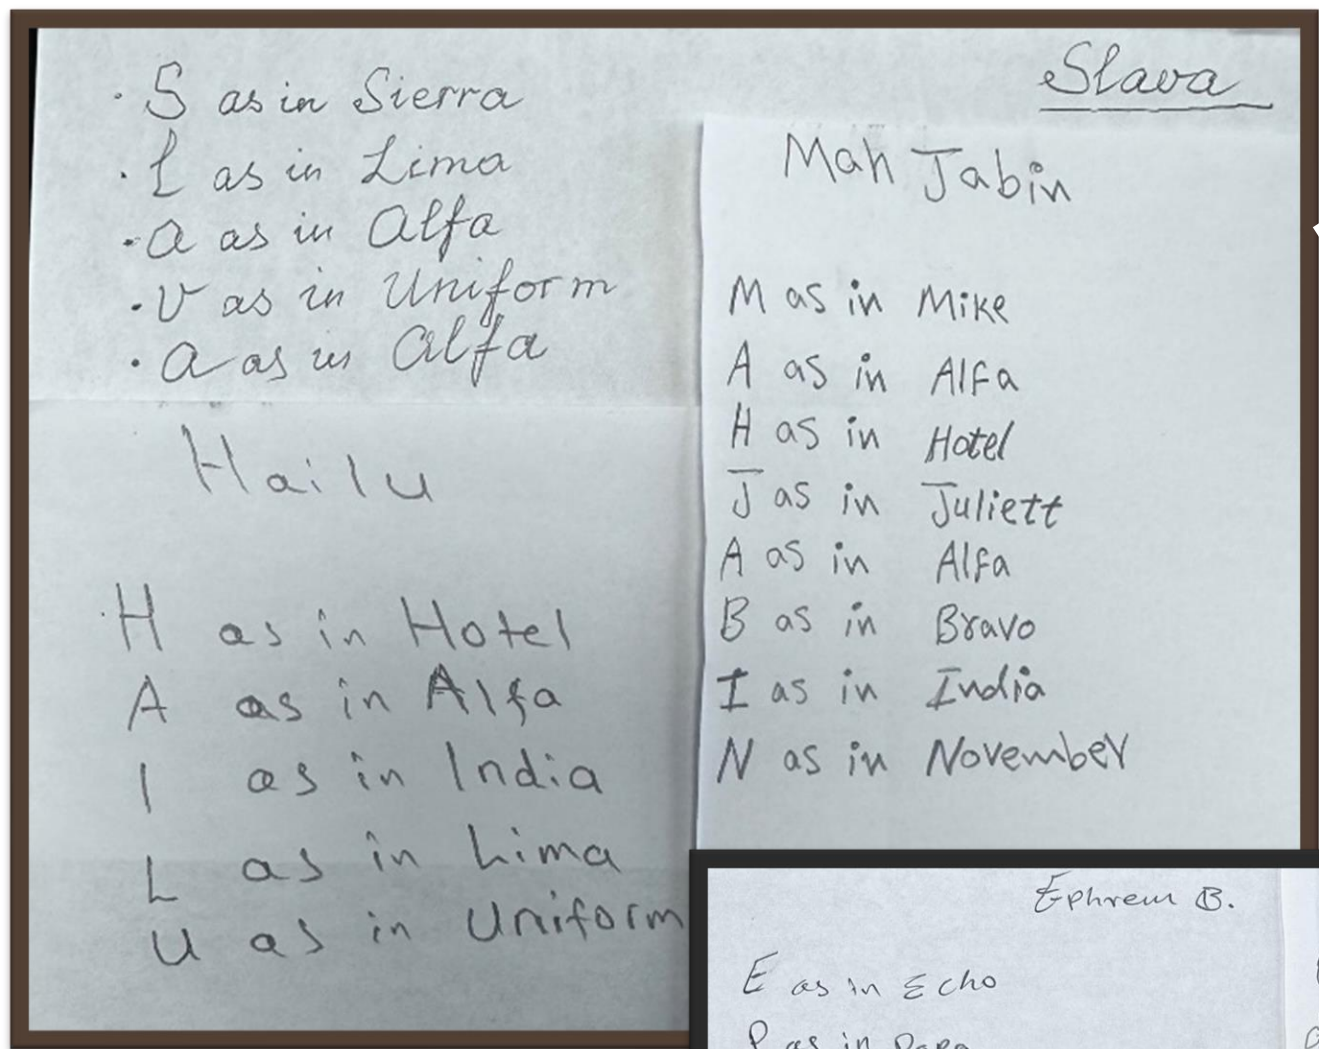 Slava
· S as in Sierra
· L as in Lima
· A as in Alfa
· V as in Uniform
· A as in Alfa
Hailu
H as in Hotel
A as in Alfa
I as in India
L as in Lima
U as in Uniform
Mah Jabin
M as in Mike
A as in Alfa
H as in Hotel
J as in Juliett
A as in Alfa
B as in Bravo
I as in India
N as in November
Ephrem B.
E as in Echo
P as in Papa